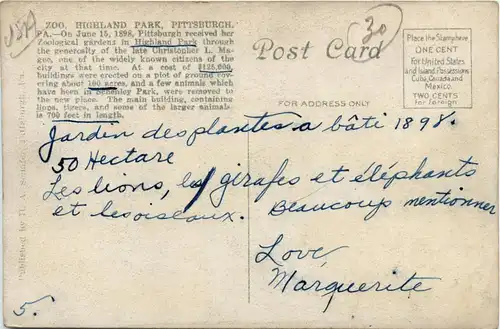 ZOO, HIGHLAND PARK, PITTSBURGH,
PA.—On June 15, 1898, Pittsburgh received her
Zoological gardens in Highland Park through
the generosity of the late Christopher L. Ma-
gee, one of the widely known citizens of the
city at that time. At a cost of $125,000,
buildings were erected on a plot of ground co-
vering about 100 acres, and a few animals which
have been in Schenley Park, were removed to
the new place. The main building, containing
lions, tigers, and some of the larger animals
is 700 feet in length.
30
Post Card
FOR ADDRESS ONLY
Place the Stamp here
ONE CENT
for United States
and Island Possessions
Cuba, Canada and
Mexico.
TWO CENTS
for foreign
Jardin des plantes a bâti 1898.
50 Hectare
Les lions, les girafes et éléphants
et les oiseaux. Beaucoup mentionner
Love,
Marguerite
5.
Published by
Pittsburgh, Pa.